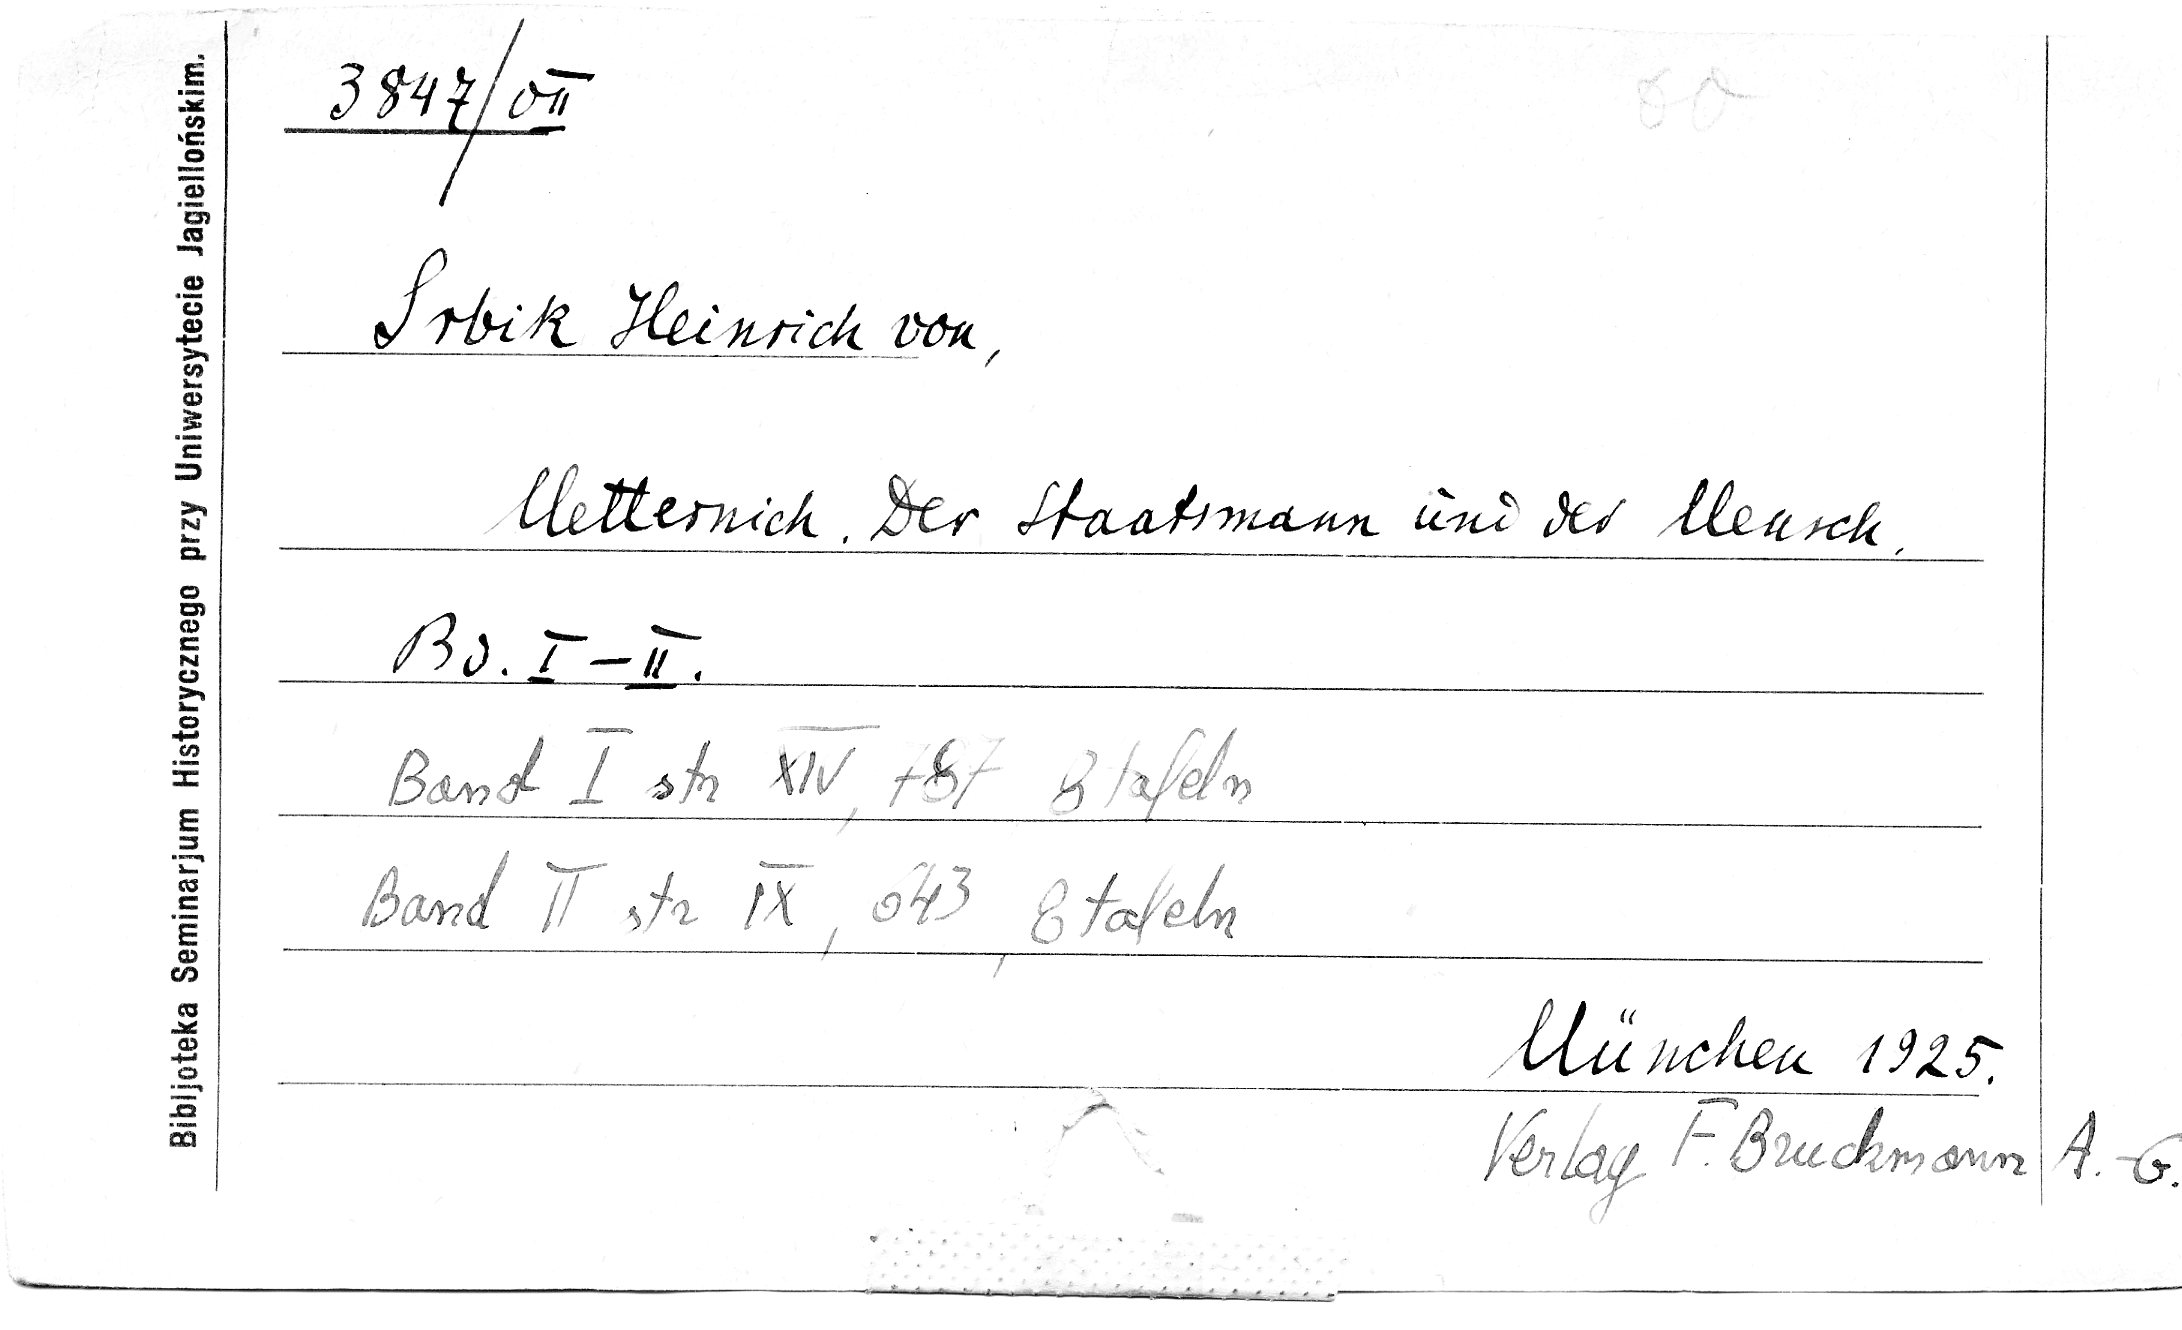 3847/VII
Srbik Heinrich von,
Metternich. Der Staatsmann und der Mensch.
Bd. I-II.
Band I str XIV, 787 8 tafeln
Band II str IX, 643, 8 tafeln
München 1925.
Verlag F. Bruckmann A.-G.
Bibljoteka Seminarjum Historycznego przy Uniwersytecie Jagiellońskim.